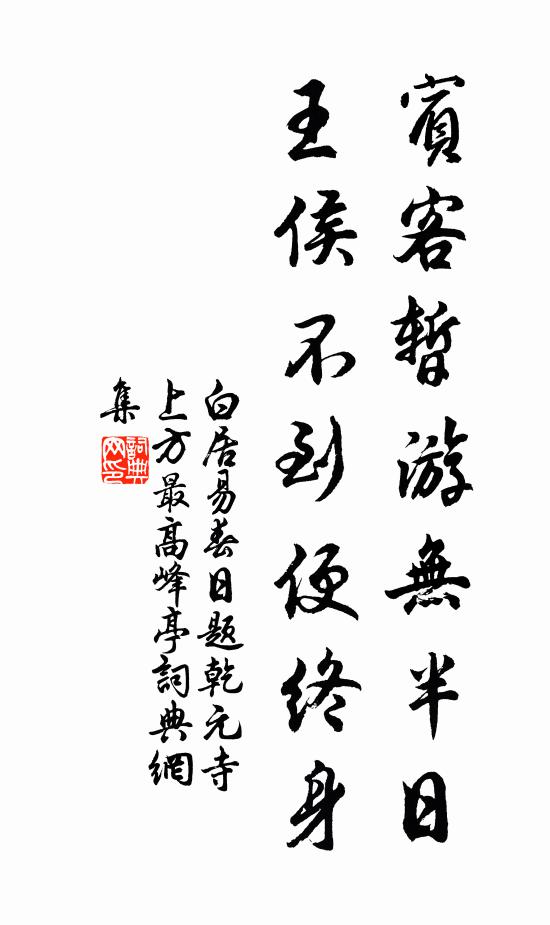 賓客暫游無半日
王侯不到便終身
白居易春日題乾元寺
上方最高峰亭詞典網
集
詞典網印